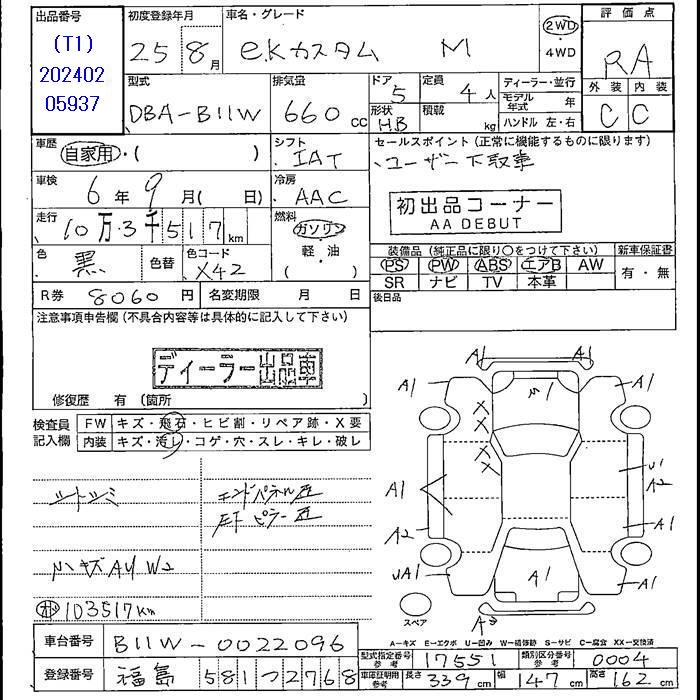 出品番号 初度登録年月 車名・グレード 評価点
(T1) 25 8月 eKカスタム M 2WD RA
202402 4WD
05937 型式 排気量 ドア 定員 ディーラー・並行 外装 内装
DBA-B11W 660cc 5 4人 モデル年式 年 C C
形状 H.B 積載 kg ハンドル 左・右
車歴 シフト セールスポイント (正常に機能するものに限ります)
自家用・( ) IAT ユーザー下取車
車検 冷房 初出品コーナー
6年9月( 日) AAC AA DEBUT
走行 燃料
10万3千517km ガソリン 装備品 (純正品に限り○をつけて下さい) 新車保証書
色 黒 色替 色コード X42 軽・油 PS PW ABS エアB AW 有・無
( ) SR ナビ TV 本革
R券 8060円 名変期限 月 日 後日品
注意事項申告欄 (不具合内容等は具体的に記入して下さい)
ディーラー出品車
修復歴 有 (箇所 )
検査員 FW キズ・飛石・ヒビ割・リペア跡・X要
記入欄 内装 キズ・汚レ・コゲ・穴・スレ・キレ・破レ
シートシミ エンドパネル
ピラー
小キズ AU W2
103517km
A1 A1 A1
A1 A1
A1 U1
A2
A2 A1
UA1 A1 A1
スペア
A-キズ E-エクボ U-凹み W-補修跡 S-サビ C-腐食 XX-交換済
車台番号 B11W-0022096
型式指定番号 参考 17551 類別区分番号 参考 0004
登録番号 福島 581 つ 2768
車庫証明用 参考 長さ 339cm 幅 147cm 高さ 162cm